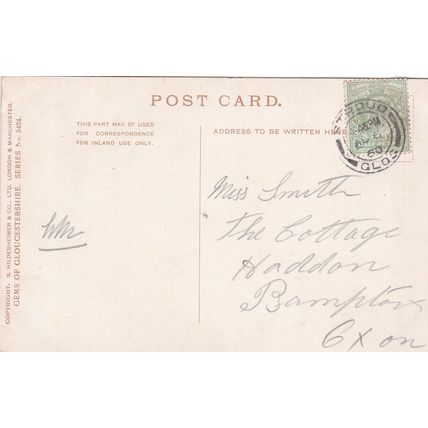 POST CARD.
THIS PART MAY BE USED
FOR CORRESPONDENCE
FOR INLAND USE ONLY.
ADDRESS TO BE WRITTEN HE
COPYRIGHT. S. HILDESHEIMER & CO., LTD. LONDON & MANCHESTER.
GEMS OF GLOUCESTERSHIRE. SERIES No. 5424.
STROUD
GLOS
Miss Smith
The Cottage
Haddon
Bampton
Oxon